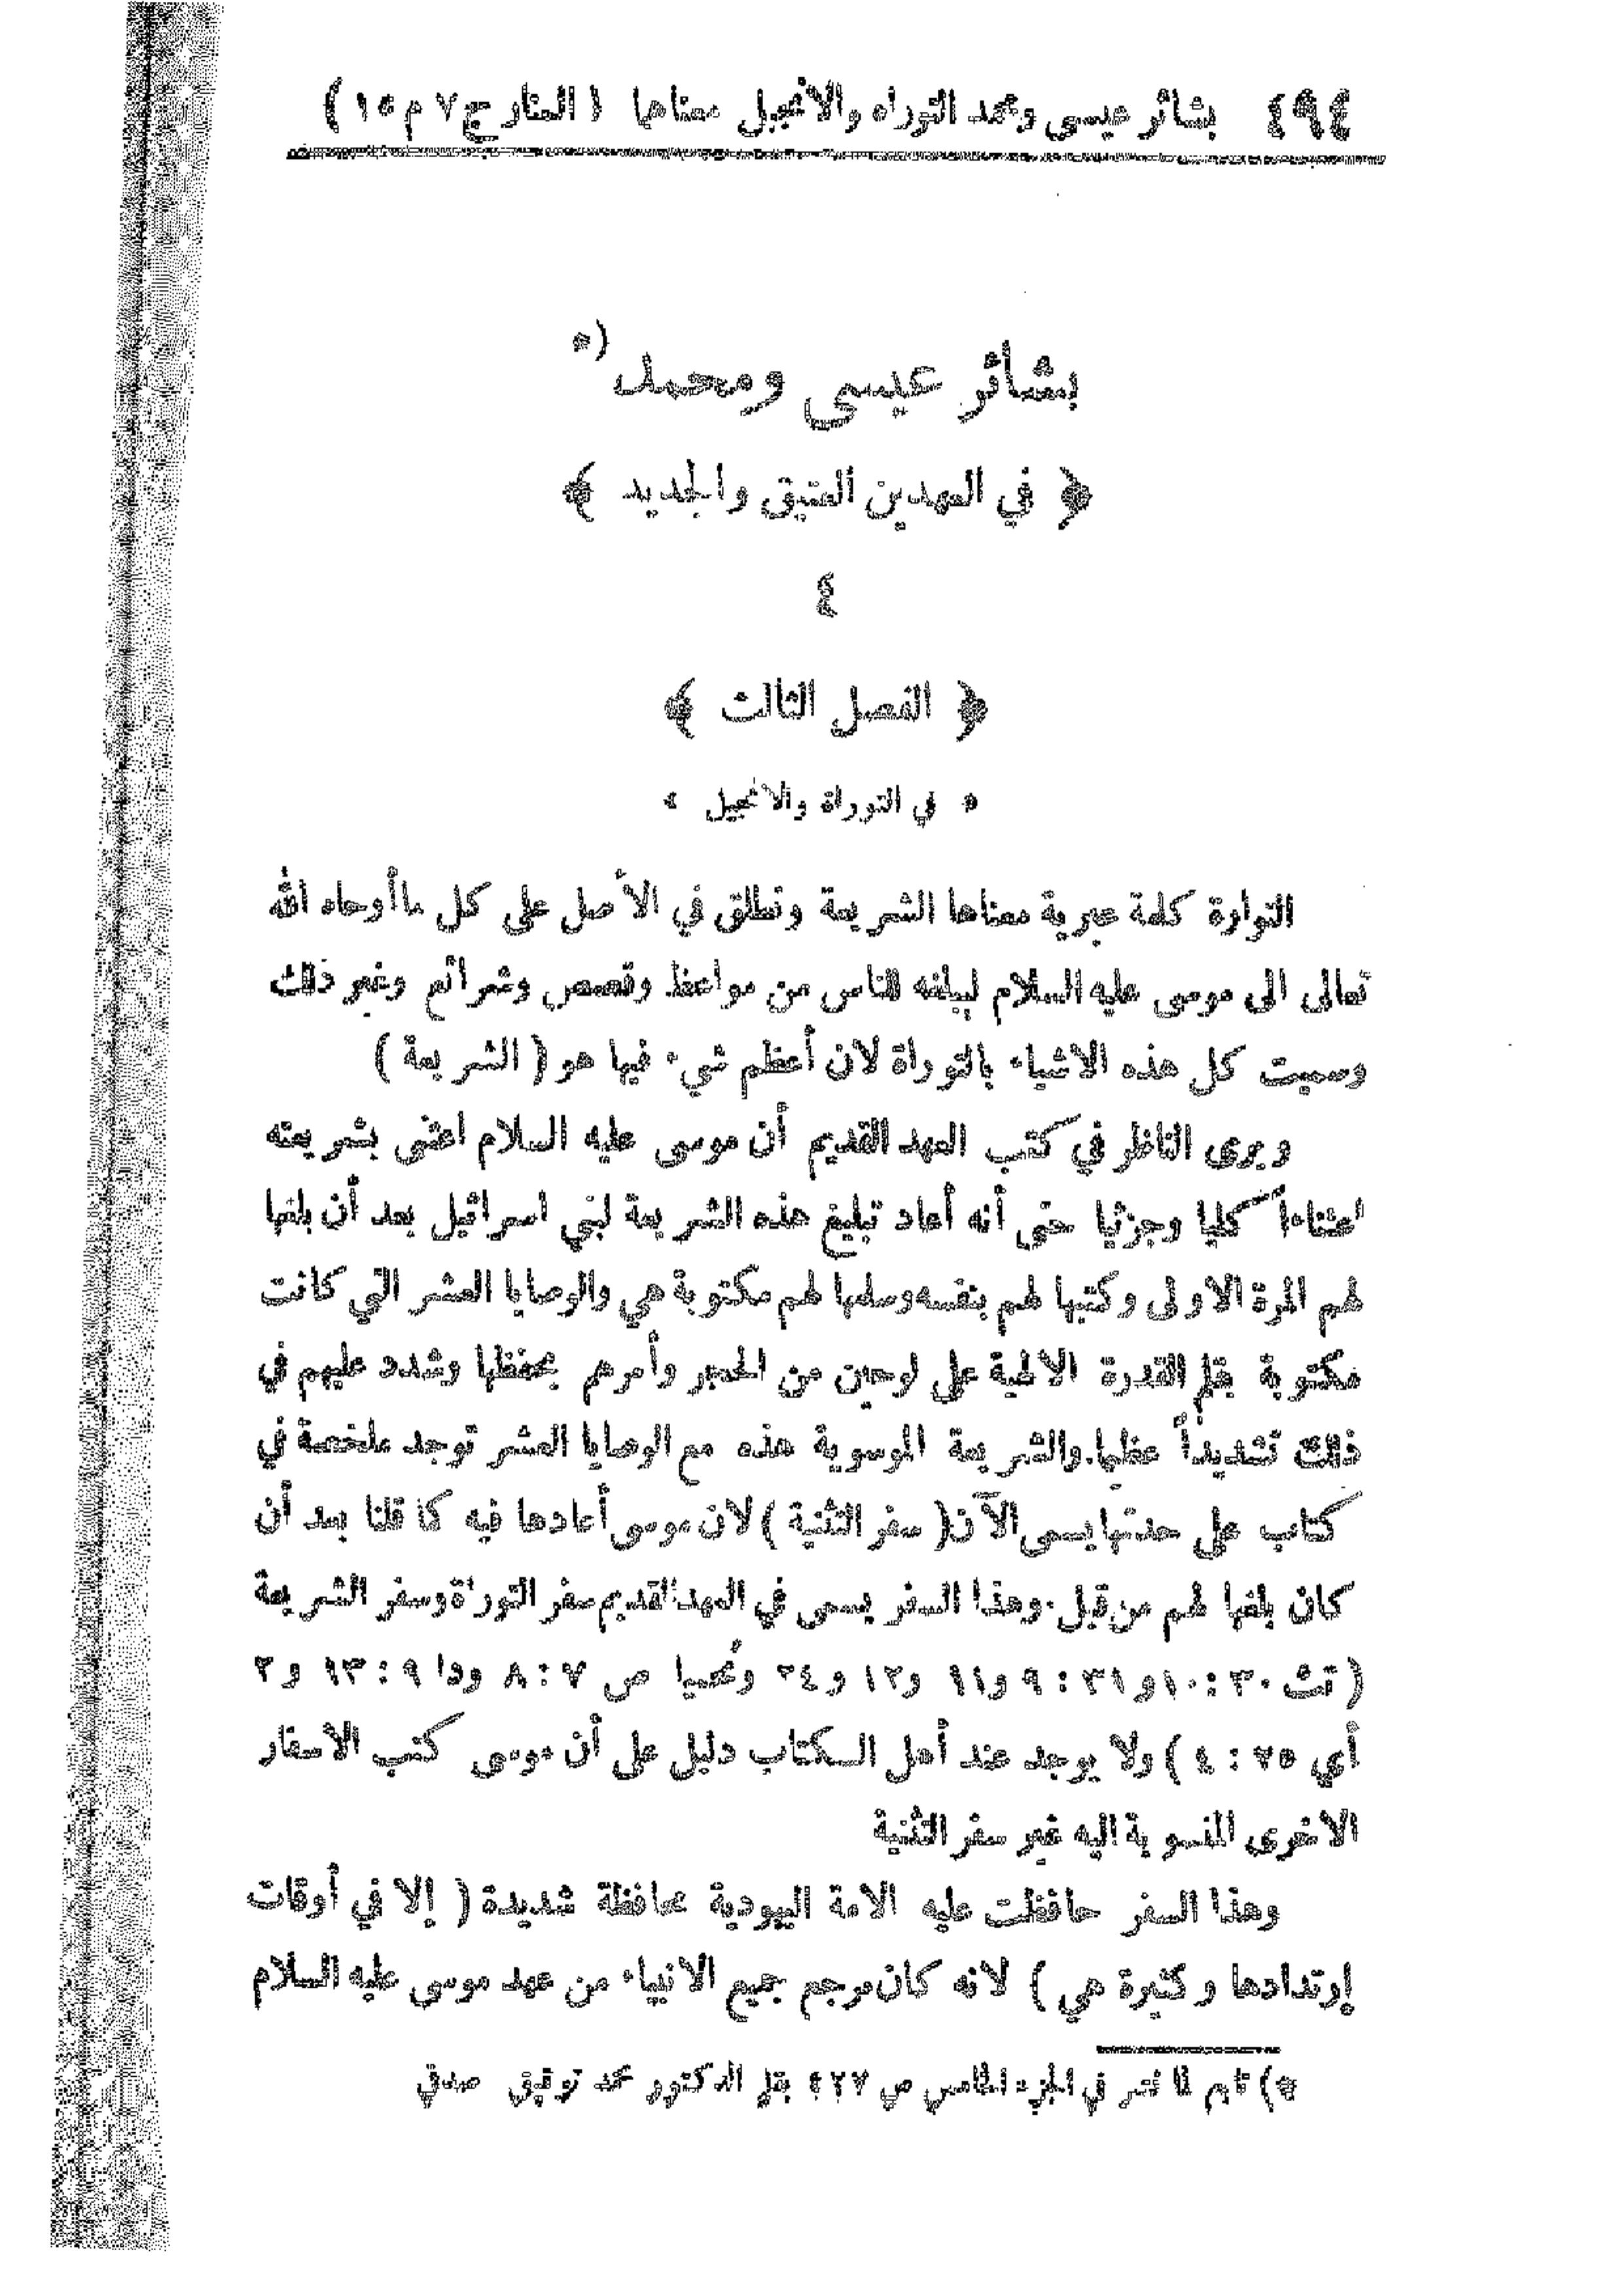 ٤٩٤ بشائر عيسى ومحمد التوراه والانجيل معناها ( المنار ج٧ م١٥ )
بشائر عيسى ومحمد *)
﴿ في العهدين العتيق والجديد ﴾
٤
﴿ الفصل الثالث ﴾
« في التوراة والانجيل »
التوارة كلمة عبرية معناها الشريعة وتطلق في الأصل على كل ماأوحاه الله
تعالى الى موسى عليه السلام ليبلغه للناس من مواعظ وقصص وشرائع وغير ذلك
وسميت كل هذه الاشياء بالتوراة لان أعظم شيء فيها هو ( الشريعة )
ويرى الناظر في كتب العهد القديم أن موسى عليه السلام اعتنى بشريعته
اعتناءاً كليا وجزئيا حتى أنه أعاد تبليغ هذه الشريعة لبني اسرائيل بعد أن بلغها
لهم المرة الاولى وكتبها لهم بنفسه وسلمها لهم مكتوبة هي والوصايا العشر التي كانت
مكتوبة بقلم القدرة الالهية على لوحين من الحجر وأمرهم بحفظها وشدد عليهم في
ذلك تشديداً عظيما. والشريعة الموسوية هذه مع الوصايا العشر توجد ملخصة في
كتاب على حدتها يسمى الآن ( سفر التثنية ) لان موسى أعادها فيه كما قلنا بعد أن
كان بلغها لهم من قبل. وهذا السفر يسمى في العهد القديم سفر التوراة وسفر الشريعة
( تث ٣٠ : ١٠ و ٣١ : ٩ و ١١ و ١٢ و ٢٤ ونحميا ص ٧ : ٨ ودا ٩ : ١٣ و ٢
أي ٢٥ : ٤ ) ولا يوجد عند أهل الكتاب دليل على أن موسى كتب الاسفار
الاخرى المنسوبة اليه غير سفر التثنية
وهذا السفر حافظت عليه الامة اليهودية محافظة شديدة ( إلا في أوقات
إرتدادها وكثيرة هي ) لانه كان مرجع جميع الانبياء من عهد موسى عليه السلام
*) تابع لما نشر في الجزء الخامس ص ٤٢٧ بقلم الدكتور محمد توفيق صدقي